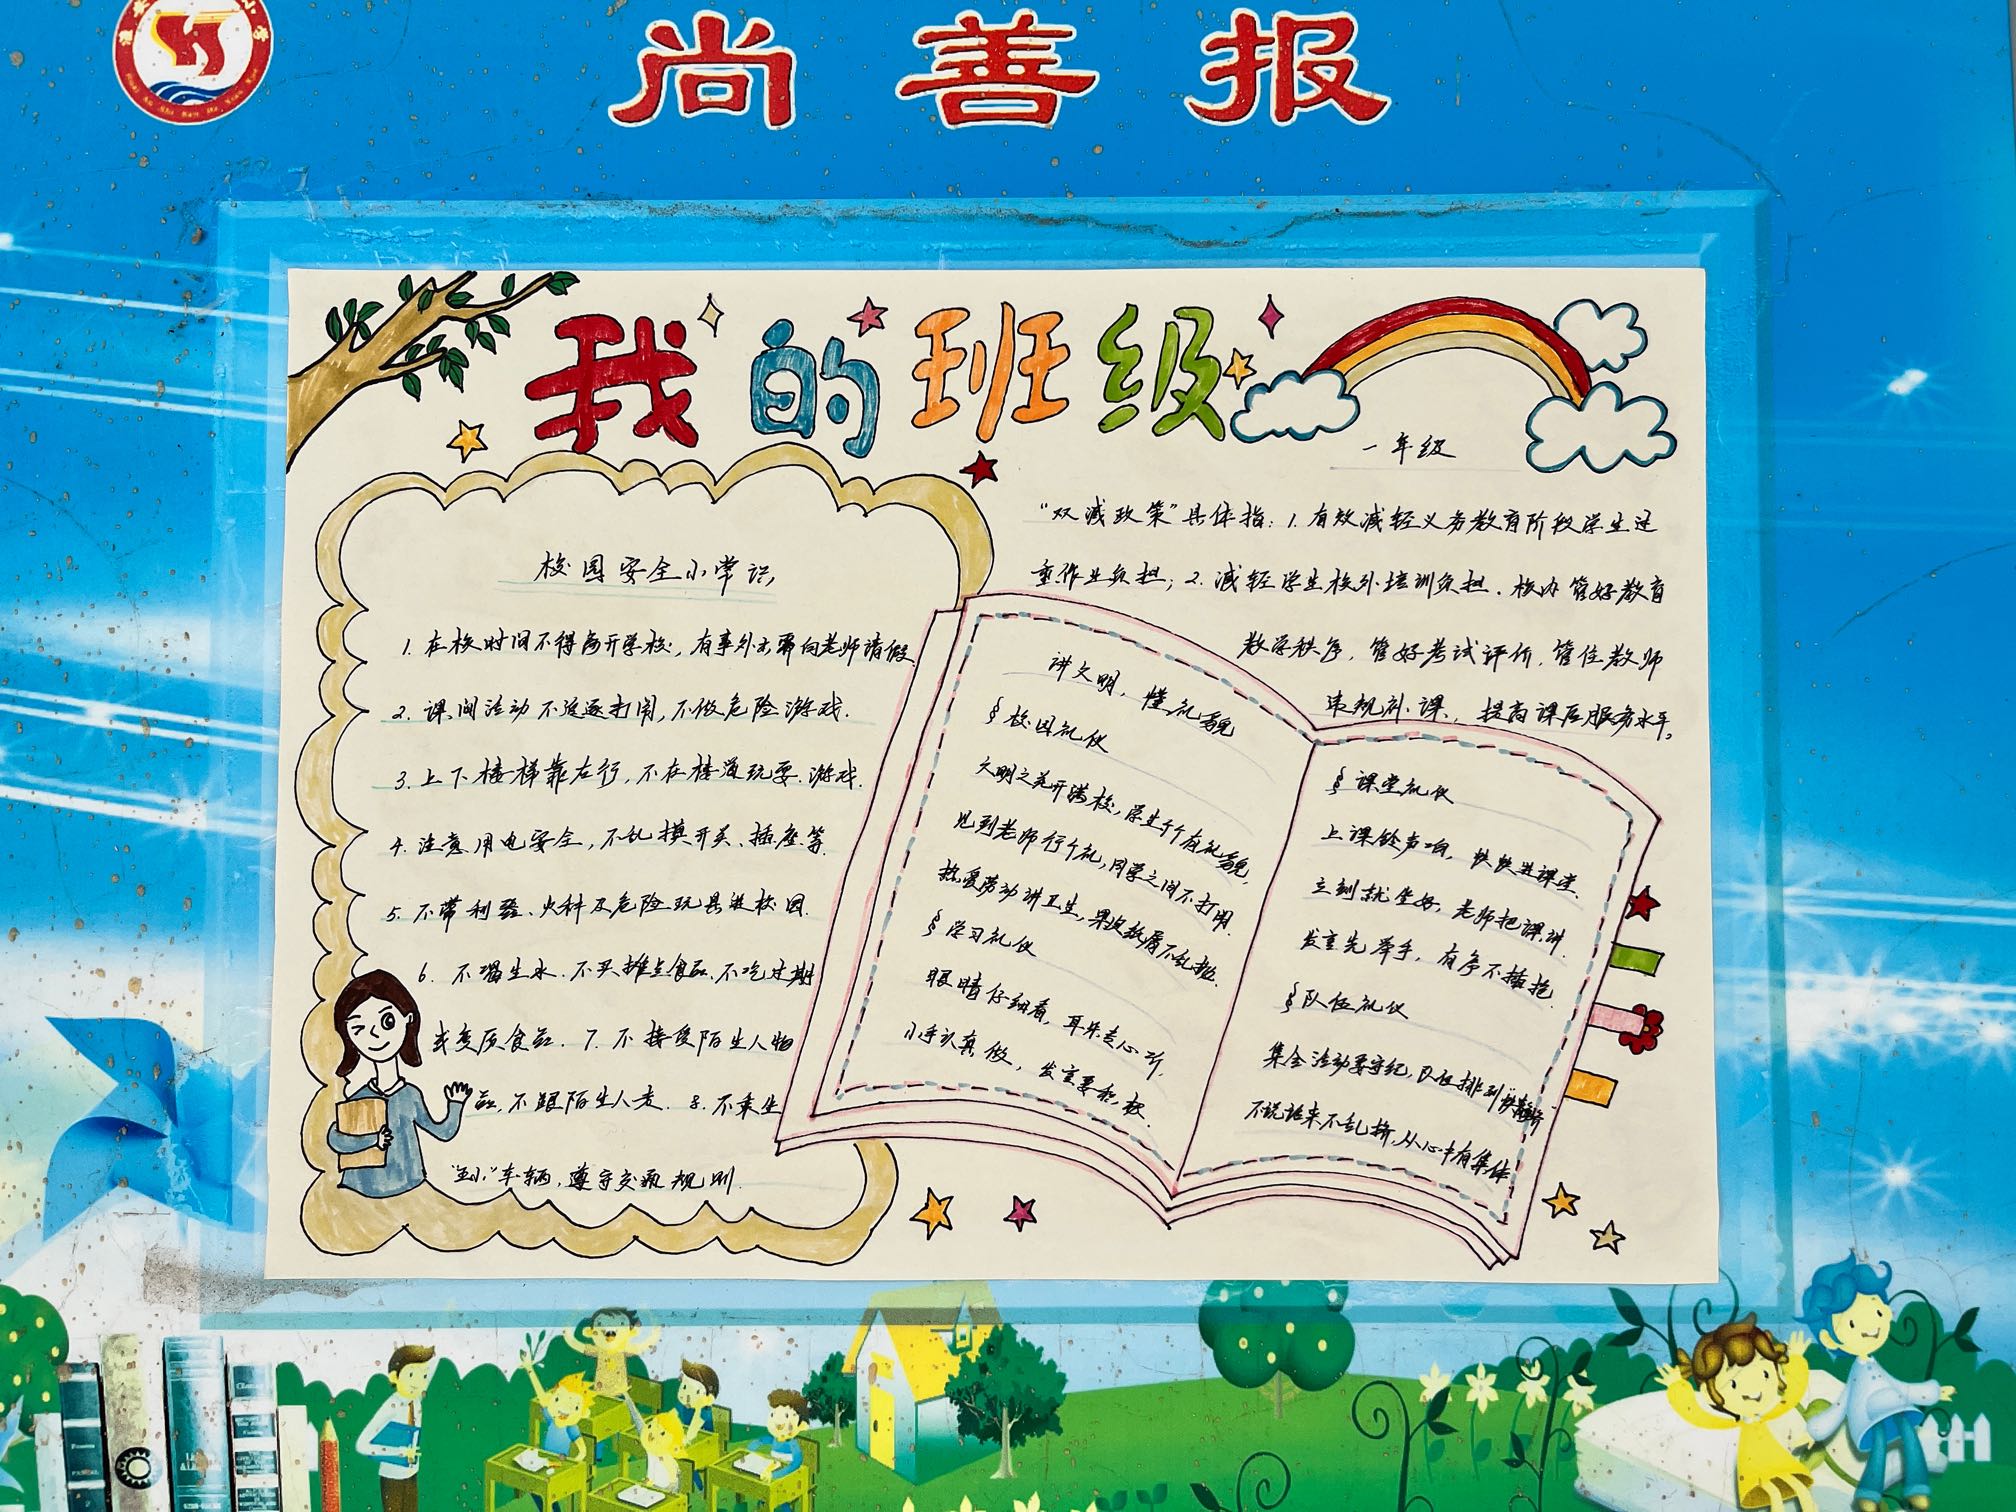 尚善报
我的班级
一年级
"双减政策"具体指：1. 有效减轻义务教育阶段学生过
重作业负担；2. 减轻学生校外培训负担. 校内管好教育
教学秩序, 管好考试评价, 管住教师
违规补课, 提高课后服务水平。
校园安全小常识
1. 在校时间不得离开学校, 有事外出要向老师请假
2. 课间活动不追逐打闹, 不做危险游戏.
3. 上下楼梯靠右行, 不在楼道玩耍. 游戏.
4. 注意用电安全, 不乱摸开关、插座等.
5. 不带利器、火种及危险玩具进校园.
6. 不喝生水. 不买摊点食品、不吃过期
或变质食品. 7. 不接受陌生人物
品, 不跟陌生人走. 8. 不乘坐
"五小"车辆, 遵守交通规则.
讲文明, 懂礼貌
§ 校园礼仪
文明之花开满校, 学生个个有礼貌,
见到老师行个礼, 同学之间不打闹.
热爱劳动讲卫生, 果皮纸屑不乱抛.
§ 学习礼仪
眼睛仔细看, 耳朵专心听,
小手认真做, 发言要积极.
§ 课堂礼仪
上课铃声响, 快快进课堂.
立刻就坐好, 老师把课讲.
发言先举手, 有序不插抢.
§ 队伍礼仪
集会活动要守纪, 队伍排列"快静齐"
不说话来不乱挤, 从心中有集体